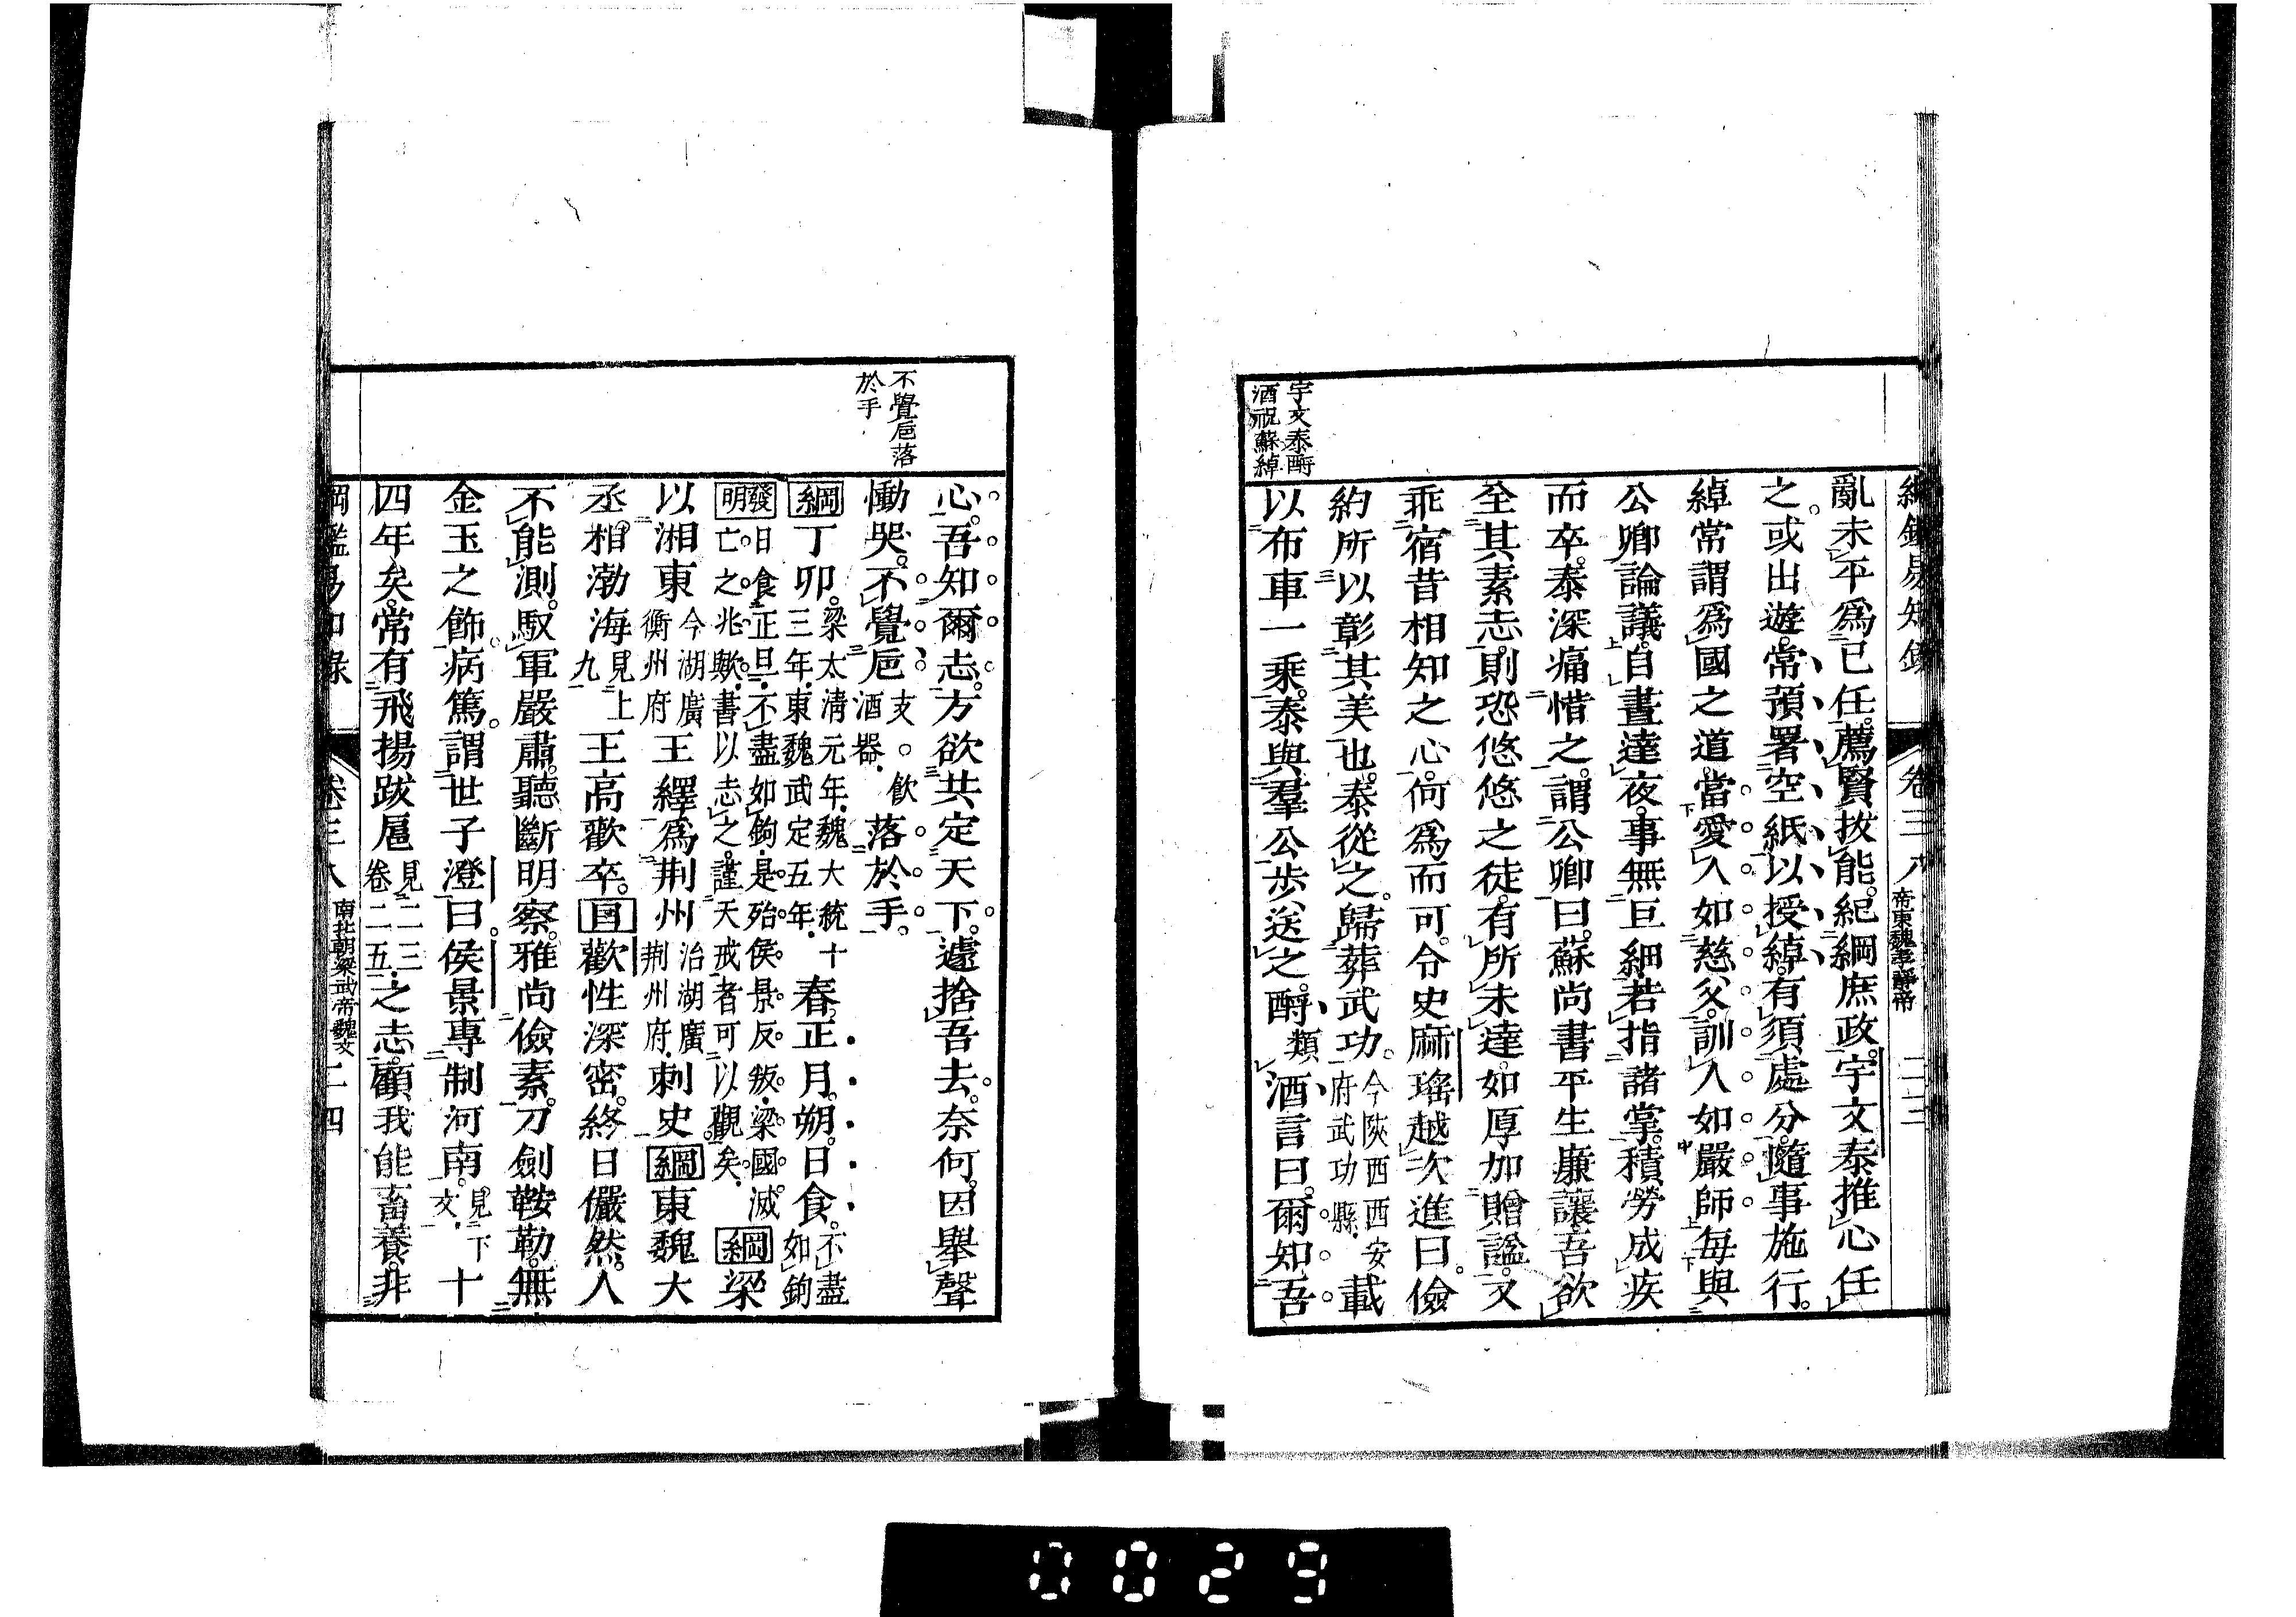 綱鑑易知錄 卷三八 帝東魏孝靜帝 二三
亂未平爲已任。薦賢拔能。紀綱庶政。宇文泰推心任
之。或出遊。常預署空紙以授綽。有須處分。隨事施行。
綽常謂爲國之道。當愛人如慈父。訓人如嚴師。每與
公卿論議。自晝達夜。事無巨細。若指諸掌。積勞成疾
而卒。泰深痛惜之。謂公卿曰。蘇尚書平生廉讓。吾欲
全其素志。則恐悠悠之徒。有所未達。如厚加贈謚。又
乖宿昔相知之心。何爲而可。令史麻瑤越次進曰。儉
約所以彰其美也。泰從之。歸葬武功。今陝西西安府武功縣。載
宇文泰酹
酒祝蘇綽
以布車一乘。泰與羣公步送之。酹類酒言曰。爾知吾
心。吾知爾志。方欲共定天下。遽捨吾去。奈何。因舉聲
不覺巵落
於手
慟哭。不覺巵支。飲酒器。落於手。
綱丁卯。梁太淸元年。魏大統十三年。東魏武定五年。春。正月。朔。日食。不盡如鉤
發明日食正旦。不盡如鉤。是殆侯景反叛。梁國滅亡之兆歟。書以志之。謹天戒者可以觀矣。綱梁
以湘東今湖廣衡州府王繹爲荆州治湖廣荆州府。刺史。綱東魏大
丞相渤海見上九王高歡卒。目歡性深密。終日儼然。人
不能測。馭軍嚴肅。聽斷明察。雅尚儉素。刀劍鞍勒。無
金玉之飾。病篤。謂世子澄曰。侯景專制河南。見下文。十
四年矣。常有飛揚跋扈見二三卷二一五。之志。顧我能畜養。非
綱鑑易知錄 卷三八 南北朝梁武帝魏文 二四
0029